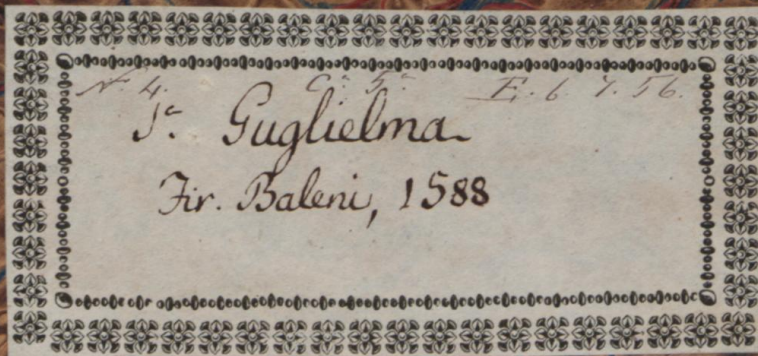 N. 4. C.ª 5.ª E. 6. 7. 56.
S.ª Guglielma
Fir. Baleni, 1588